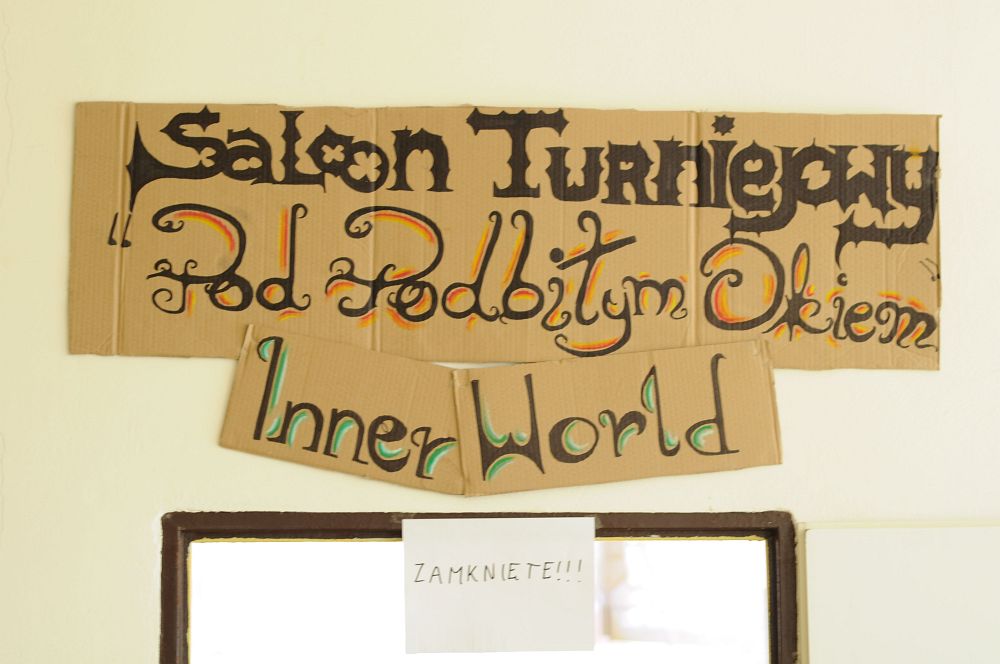 Saloon Turniejowy
„Pod Podbitym Okiem”
Inner World
ZAMKNIĘTE!!!